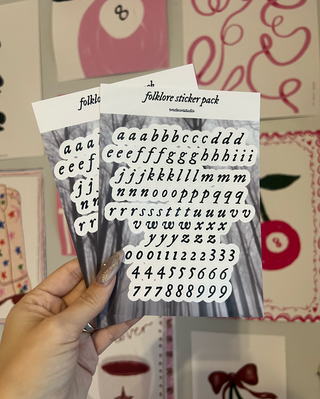 folklore sticker pack
aaabbbcccddd
eeefffggghhhiii
jjjkkklllmmm
nnnooopppqqq
rrrssstttuuuvv
vwwwxxx
yyyzzz
000111222333
444555666
777888999
folklo
aaa
eeef
jj
nn
rr
8
8